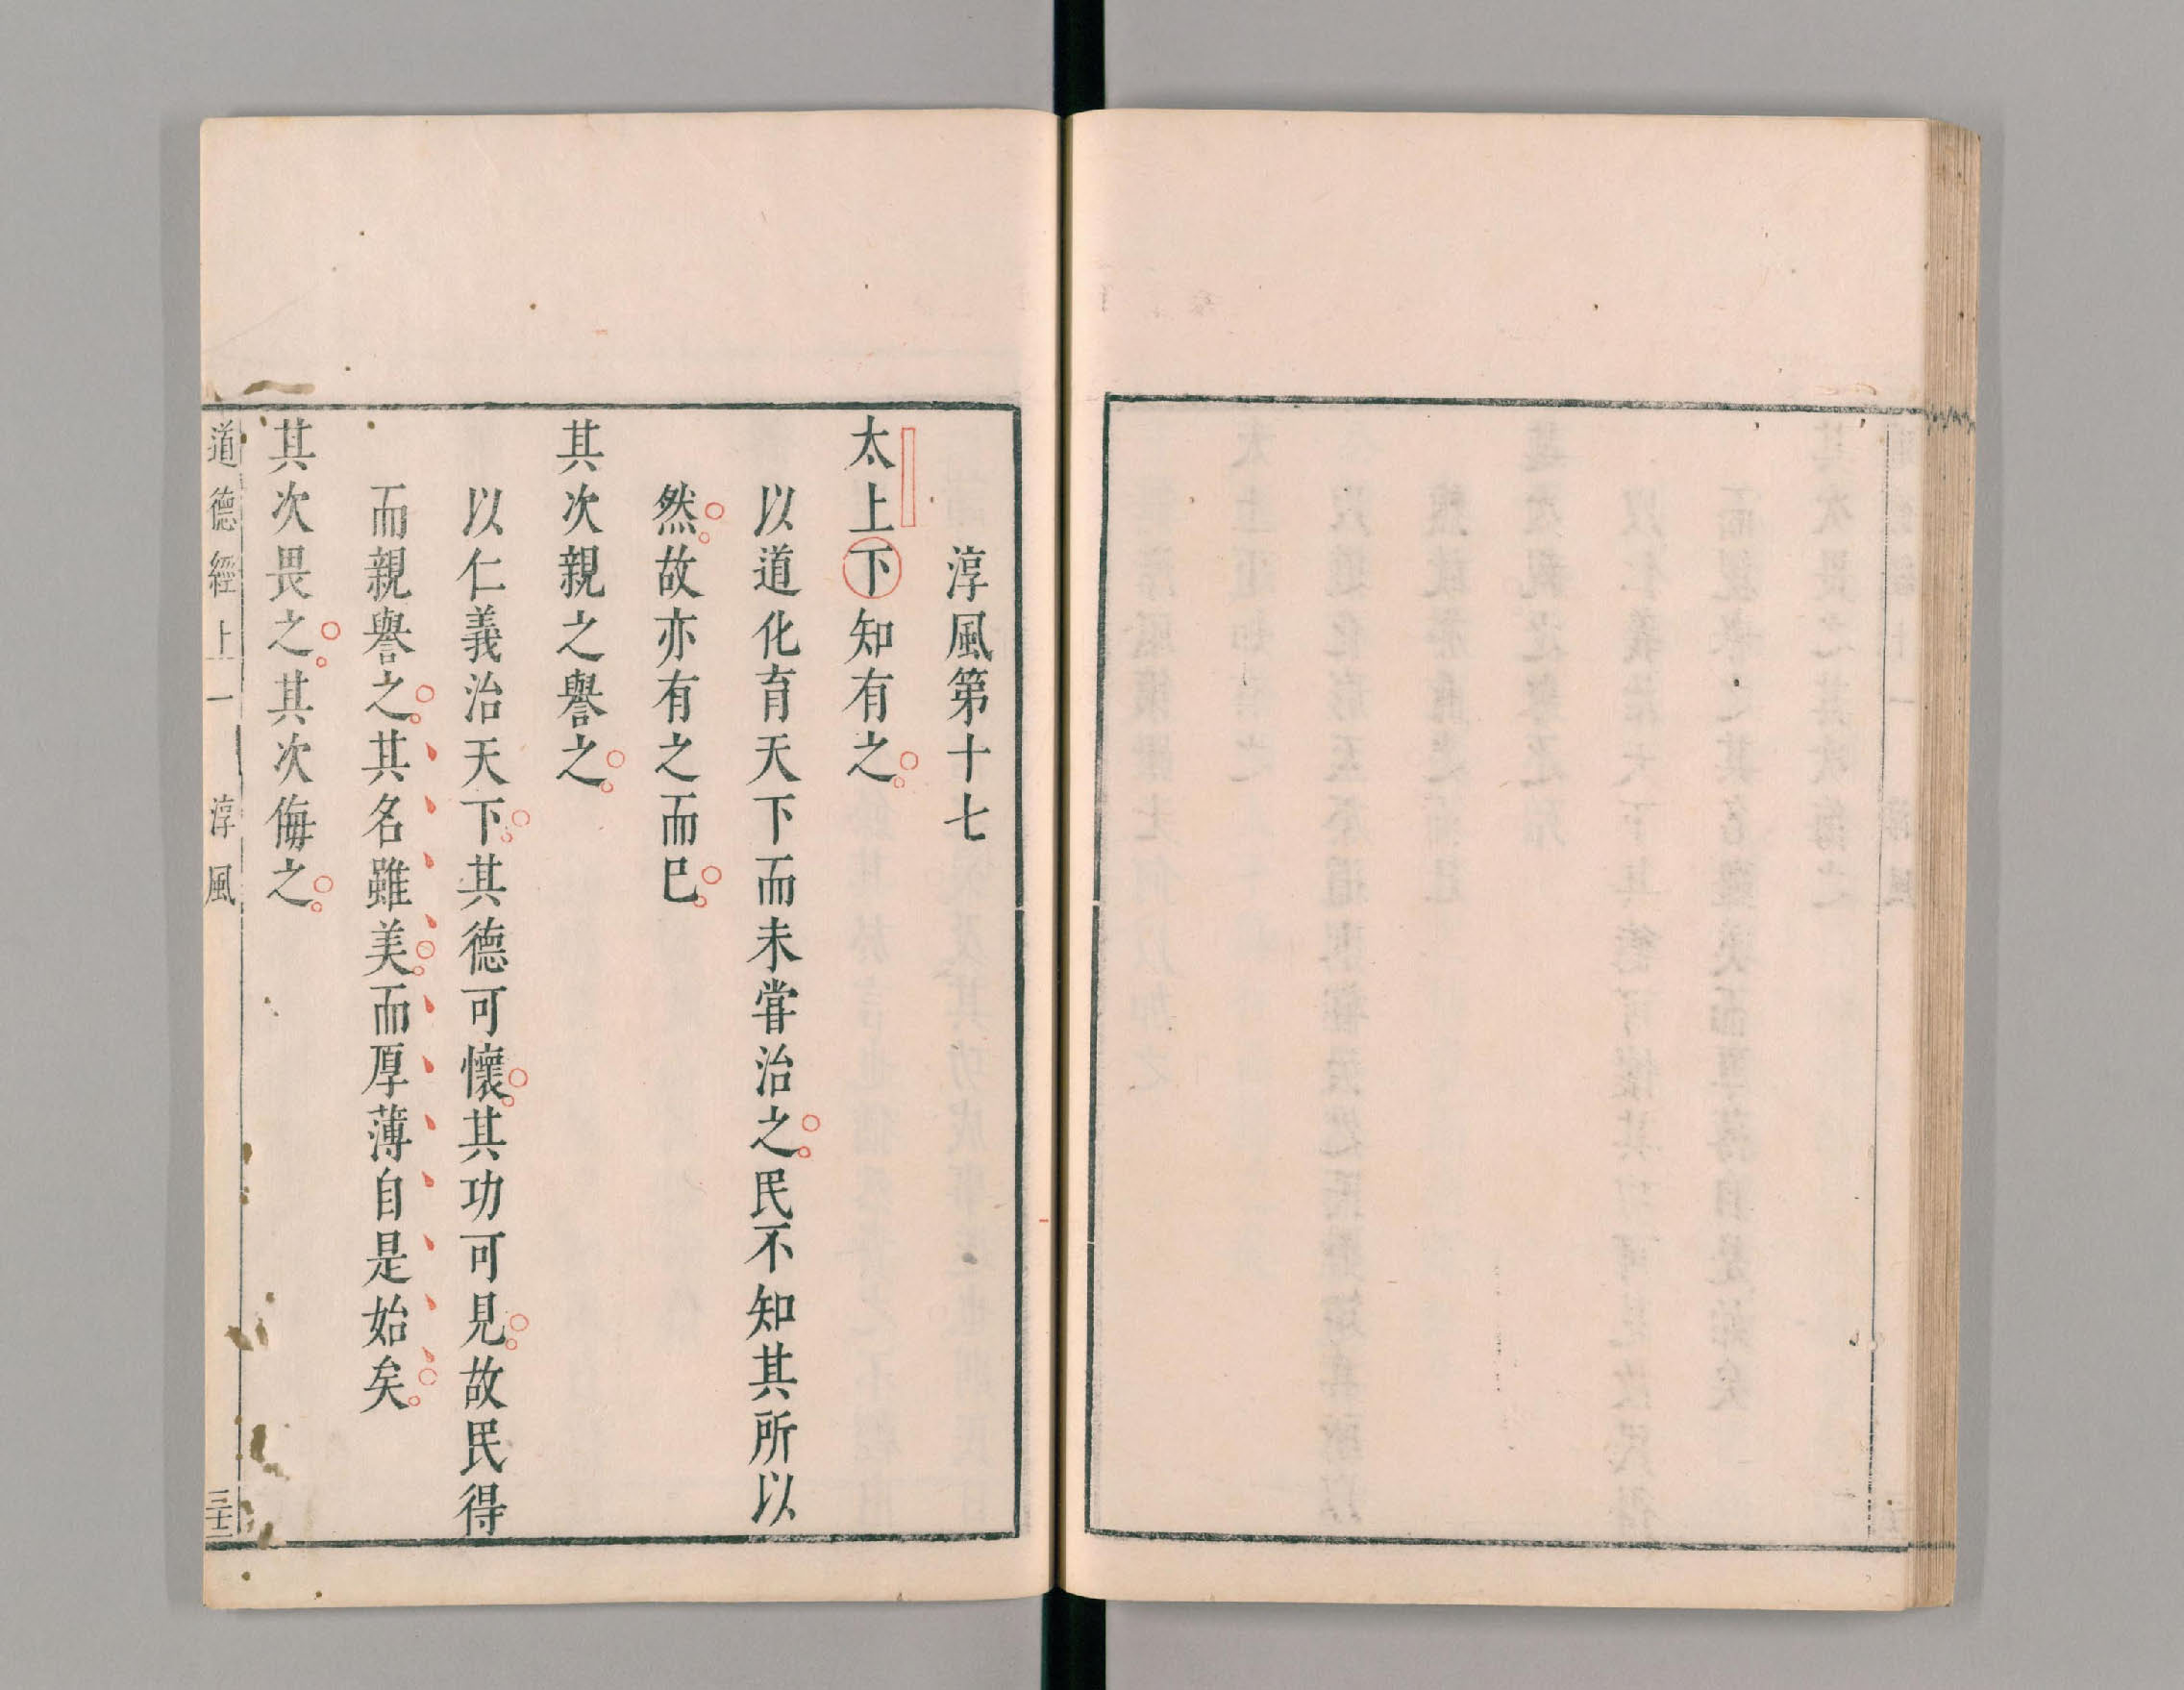 淳風第十七
太上下知有之
以道化育天下而未甞治之民不知其所以
然故亦有之而已
其次親之譽之
以仁義治天下其德可懷其功可見故民得
而親譽之其名雖美而厚薄自是始矣
其次畏之其次侮之
道德經上 淳風